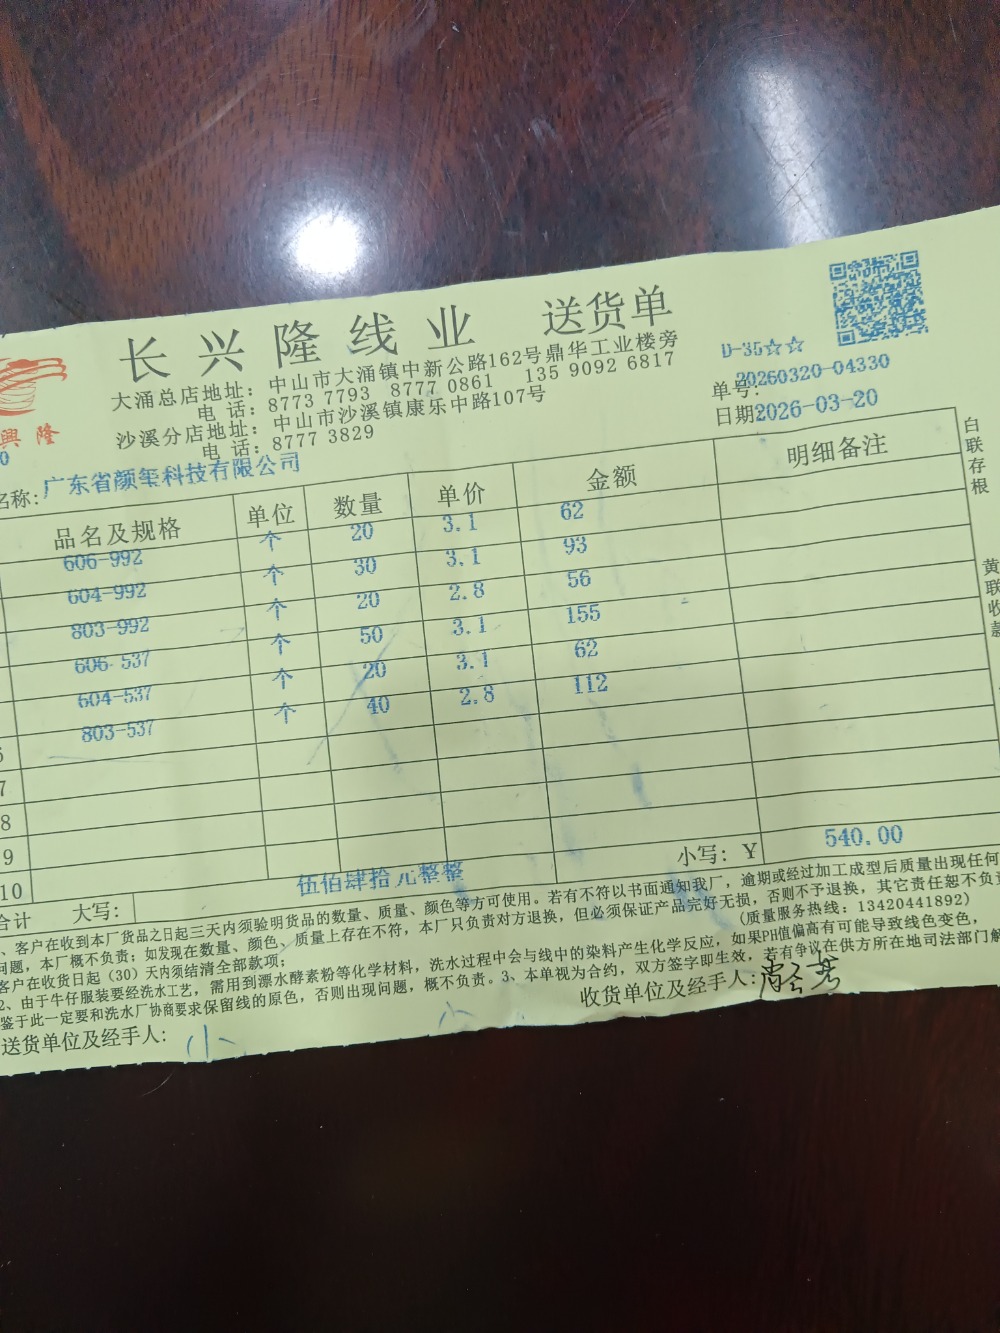 长兴隆线业 送货单
大涌总店地址: 中山市大涌镇中新公路162号鼎华工业楼旁
电 话: 8773 7793 8777 0861 135 9092 6817
沙溪分店地址: 中山市沙溪镇康乐中路107号
电 话: 8777 3829
興隆
D-35☆☆
单号: 20260320-04330
日期 2026-03-20
名称: 广东省颜玺科技有限公司
品名及规格 单位 数量 单价 金额 明细备注
606-992 个 20 3.1 62
604-992 个 30 3.1 93
803-992 个 20 2.8 56
606-537 个 50 3.1 155
604-537 个 20 3.1 62
803-537 个 40 2.8 112
7
8
9
10
合计 大写: 伍佰肆拾元整整 小写: Y 540.00
、客户在收到本厂货品之日起三天内须验明货品的数量、质量、颜色等方可使用。若有不符以书面通知我厂,逾期或经过加工成型后质量出现任何
问题,本厂概不负责;如发现在数量、颜色、质量上存在不符,本厂只负责对方退换,但必须保证产品完好无损,否则不予退换,其它责任恕不负责
客户在收货日起(30)天内须结清全部款项; (质量服务热线:13420441892)
2、由于牛仔服装要经洗水工艺,需用到漂水酵素粉等化学材料,洗水过程中会与线中的染料产生化学反应,如果PH值偏高有可能导致线色变色,
鉴于此一定要和洗水厂协商要求保留线的原色,否则出现问题,概不负责。3、本单视为合约,双方签字即生效,若有争议在供方所在地司法部门解
送货单位及经手人: 小 收货单位及经手人:
白联存根
黄联收款